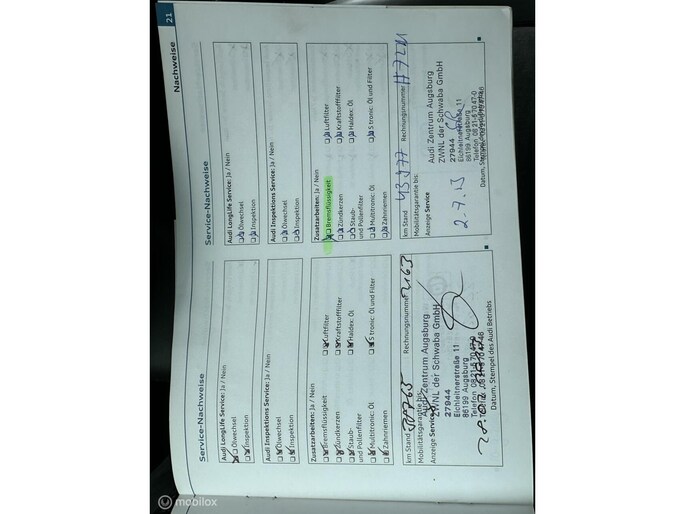 Nachweise 21
Service-Nachweise
Audi LongLife Service: Ja / Nein
Ölwechsel
Inspektion
Audi Inspektions Service: Ja / Nein
Ölwechsel
Inspektion
Zusatzarbeiten: Ja / Nein
Bremsflüssigkeit
Luftfilter
Zündkerzen
Kraftstofffilter
Staub- und Pollenfilter
Haldex: Öl
Multitronic: Öl
S tronic: Öl und Filter
Zahnriemen
km Stand
Rechnungsnummer
Mobilitätsgarantie bis:
Anzeige Service
Audi Zentrum Augsburg
ZWNL der Schwaba GmbH
27944
Eichleitnerstraße 11
86199 Augsburg
Datum, Stempel des Audi Betriebs
Service-Nachweise
Audi LongLife Service: Ja / Nein
Ölwechsel
Inspektion
Audi Inspektions Service: Ja / Nein
Ölwechsel
Inspektion
Zusatzarbeiten: Ja / Nein
Bremsflüssigkeit
Luftfilter
Zündkerzen
Kraftstofffilter
Staub- und Pollenfilter
Haldex: Öl
Multitronic: Öl
S tronic: Öl und Filter
Zahnriemen
km Stand
Rechnungsnummer
Mobilitätsgarantie bis:
Anzeige Service
Audi Zentrum Augsburg
ZWNL der Schwaba GmbH
27944
Eichleitnerstraße 11
86199 Augsburg
Telefon
2-7.13
mobilox